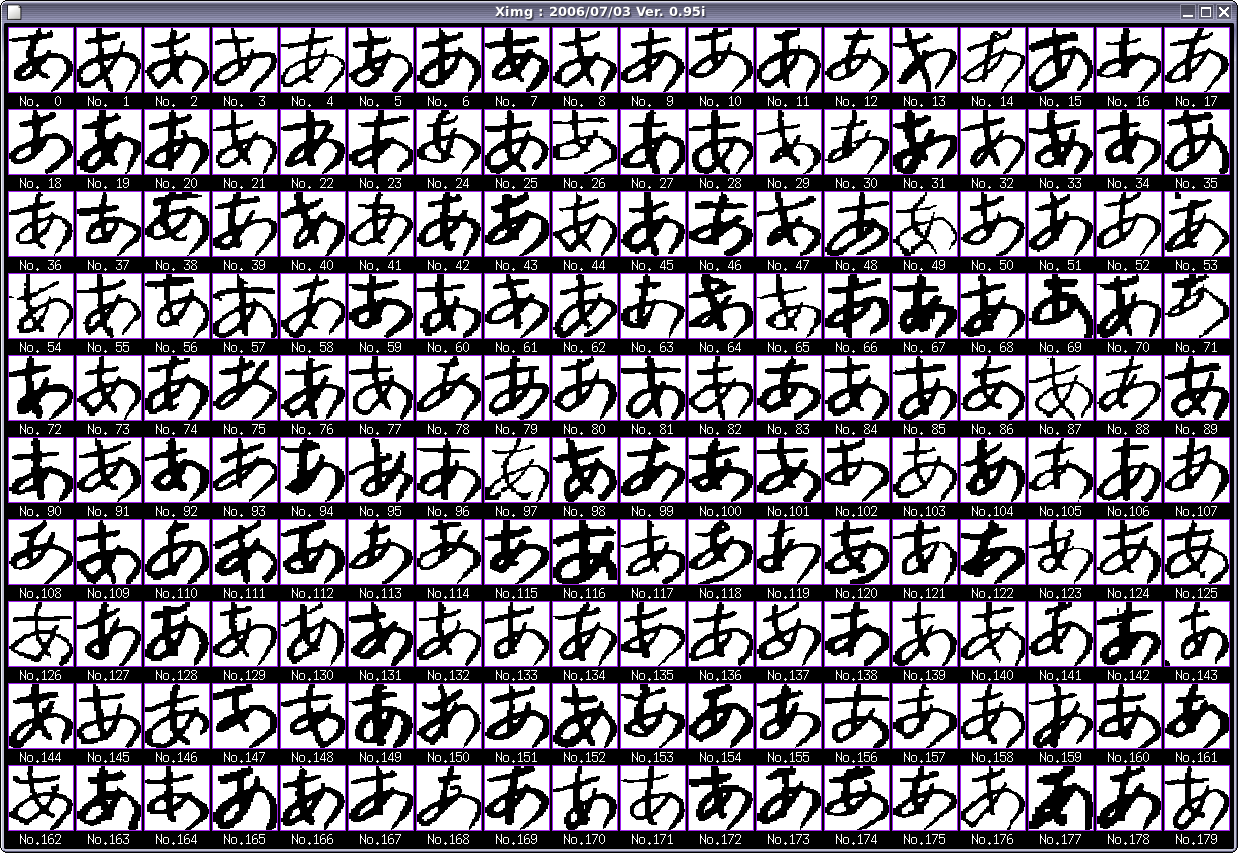 Ximg : 2006/07/03 Ver. 0.95i
あ あ あ あ あ あ あ あ あ あ あ あ あ あ あ あ あ あ
No. 0 No. 1 No. 2 No. 3 No. 4 No. 5 No. 6 No. 7 No. 8 No. 9 No. 10 No. 11 No. 12 No. 13 No. 14 No. 15 No. 16 No. 17
あ あ あ あ あ あ あ あ あ あ あ あ あ あ あ あ あ あ
No. 18 No. 19 No. 20 No. 21 No. 22 No. 23 No. 24 No. 25 No. 26 No. 27 No. 28 No. 29 No. 30 No. 31 No. 32 No. 33 No. 34 No. 35
あ あ あ あ あ あ あ あ あ あ あ あ あ あ あ あ あ あ
No. 36 No. 37 No. 38 No. 39 No. 40 No. 41 No. 42 No. 43 No. 44 No. 45 No. 46 No. 47 No. 48 No. 49 No. 50 No. 51 No. 52 No. 53
あ あ あ あ あ あ あ あ あ あ あ あ あ あ あ あ あ あ
No. 54 No. 55 No. 56 No. 57 No. 58 No. 59 No. 60 No. 61 No. 62 No. 63 No. 64 No. 65 No. 66 No. 67 No. 68 No. 69 No. 70 No. 71
あ あ あ あ あ あ あ あ あ あ あ あ あ あ あ あ あ あ
No. 72 No. 73 No. 74 No. 75 No. 76 No. 77 No. 78 No. 79 No. 80 No. 81 No. 82 No. 83 No. 84 No. 85 No. 86 No. 87 No. 88 No. 89
あ あ あ あ あ あ あ あ あ あ あ あ あ あ あ あ あ あ
No. 90 No. 91 No. 92 No. 93 No. 94 No. 95 No. 96 No. 97 No. 98 No. 99 No.100 No.101 No.102 No.103 No.104 No.105 No.106 No.107
あ あ あ あ あ あ あ あ あ あ あ あ あ あ あ あ あ あ
No.108 No.109 No.110 No.111 No.112 No.113 No.114 No.115 No.116 No.117 No.118 No.119 No.120 No.121 No.122 No.123 No.124 No.125
あ あ あ あ あ あ あ あ あ あ あ あ あ あ あ あ あ あ
No.126 No.127 No.128 No.129 No.130 No.131 No.132 No.133 No.134 No.135 No.136 No.137 No.138 No.139 No.140 No.141 No.142 No.143
あ あ あ あ あ あ あ あ あ あ あ あ あ あ あ あ あ あ
No.144 No.145 No.146 No.147 No.148 No.149 No.150 No.151 No.152 No.153 No.154 No.155 No.156 No.157 No.158 No.159 No.160 No.161
あ あ あ あ あ あ あ あ あ あ あ あ あ あ あ あ あ あ
No.162 No.163 No.164 No.165 No.166 No.167 No.168 No.169 No.170 No.171 No.172 No.173 No.174 No.175 No.176 No.177 No.178 No.179